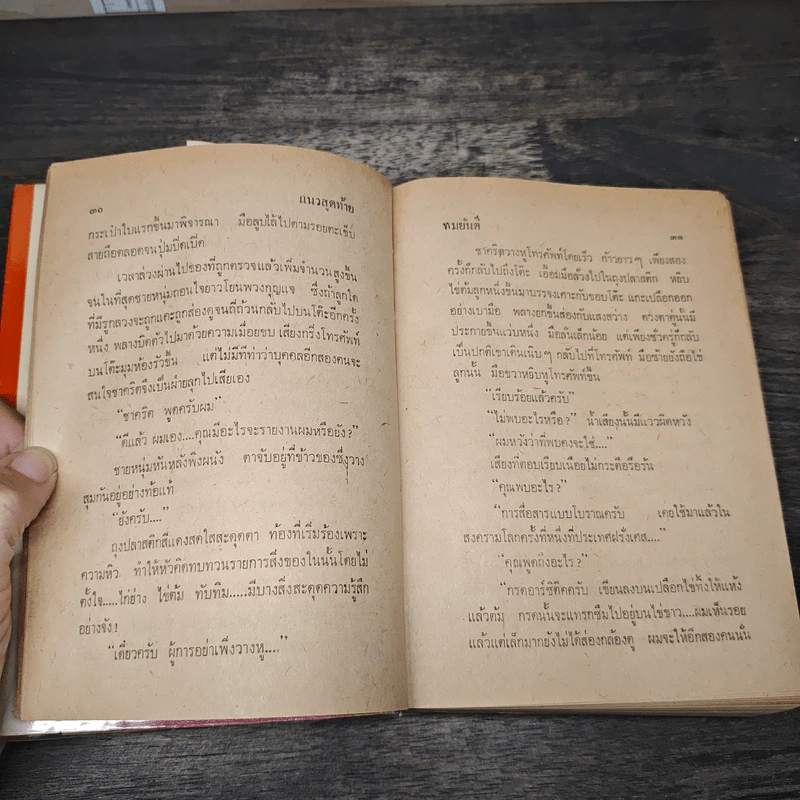 ๓๐
แนวสุดท้าย
กระเป๋าใบแรกขึ้นมาพิจารณา มือลูบไล้ไปตามรอยตะเข็บ
สายถือตลอดจนปุ่มปิดเปิด
เวลาล่วงผ่านไปของที่ถูกตรวจแล้วเพิ่มจำนวนสูงขึ้น
จนในที่สุดชายหนุ่มถอนใจยาวโยนพวงกุญแจ ซึ่งถ้าลูกใด
ที่มีรูกลวงจะถูกแคะถูกส่องดูจนถี่ถ้วนกลับไปบนโต๊ะอีกครั้ง
หนึ่ง พลางบิดตัวไปมาด้วยความเมื่อยขบ เสียงกริ่งโทรศัพท์
บนโต๊ะมุมห้องรัวขึ้น แต่ไม่มีทีท่าว่าบุคคลอีกสองคนจะ
สนใจชาคริตจึงเป็นฝ่ายลุกไปเสียเอง
“ชาคริต พูดครับผม”
“ดีแล้ว ผมเอง....คุณมีอะไรจะรายงานผมหรือยัง?”
ชายหนุ่มหันหลังพิงผนัง ตาจับอยู่ที่ข้าวของซึ่งวาง
สุมกันอยู่อย่างท้อแท้
“ยังครับ....”
ถุงปลาสติกสีแดงสดใสสะดุดตา ท้องที่เริ่มร้องเพราะ
ความหิว ทำให้หัวคิดทบทวนรายการสิ่งของในนั้นโดยไม่
ตั้งใจ.....ไก่ย่าง ไข่ต้ม ทับทิม.....มีบางสิ่งสะดุดความรู้สึก
อย่างจัง!
“เดี๋ยวครับ ผู้การอย่าเพิ่งวางหู....”
ทมยันตี
๓๑
ชาคริตวางหูโทรศัพท์โดยเร็ว ก้าวยาวๆ เพียงสอง
ครั้งก็กลับไปถึงโต๊ะ เอื้อมมือล้วงไปในถุงปลาสติก หยิบ
ไข่ต้มลูกหนึ่งขึ้นมาบรรจงเคาะกับขอบโต๊ะ แกะเปลือกออก
อย่างเบามือ พลางยกขึ้นส่องกับแสงสว่าง ดวงตาคู่นั้นมี
ประกายขึ้นแวบหนึ่ง มือสั่นเล็กน้อย แต่เพียงชั่วครู่ก็กลับ
เป็นปกติเขาเดินเนิบๆ กลับไปที่โทรศัพท์ มือซ้ายยังถือไข่
ลูกนั้น มือขวาหยิบหูโทรศัพท์ขึ้น
“เรียบร้อยแล้วครับ”
“ไม่พบอะไรหรือ?” น้ำเสียงนั้นมีแววผิดหวัง
“ผมหวังว่าที่พบคงจะใช่....”
เสียงที่ตอบเรียบเนือยไม่กระตือรือร้น
“คุณพบอะไร?”
“การสื่อสารแบบโบราณครับ เคยใช้มาแล้วใน
สงครามโลกครั้งที่หนึ่งที่ประเทศฝรั่งเศส....”
“คุณพูดถึงอะไร?”
“กรดอาร์ซิติคครับ เขียนลงบนเปลือกไข่ทิ้งให้แห้ง
แล้วต้ม กรดนั้นจะแทรกซึมไปอยู่บนไข่ขาว....ผมเห็นรอย
แล้วแต่เล็กมากยังไม่ได้ส่องกล้องดู ผมจะให้อีกสองคนนั่น